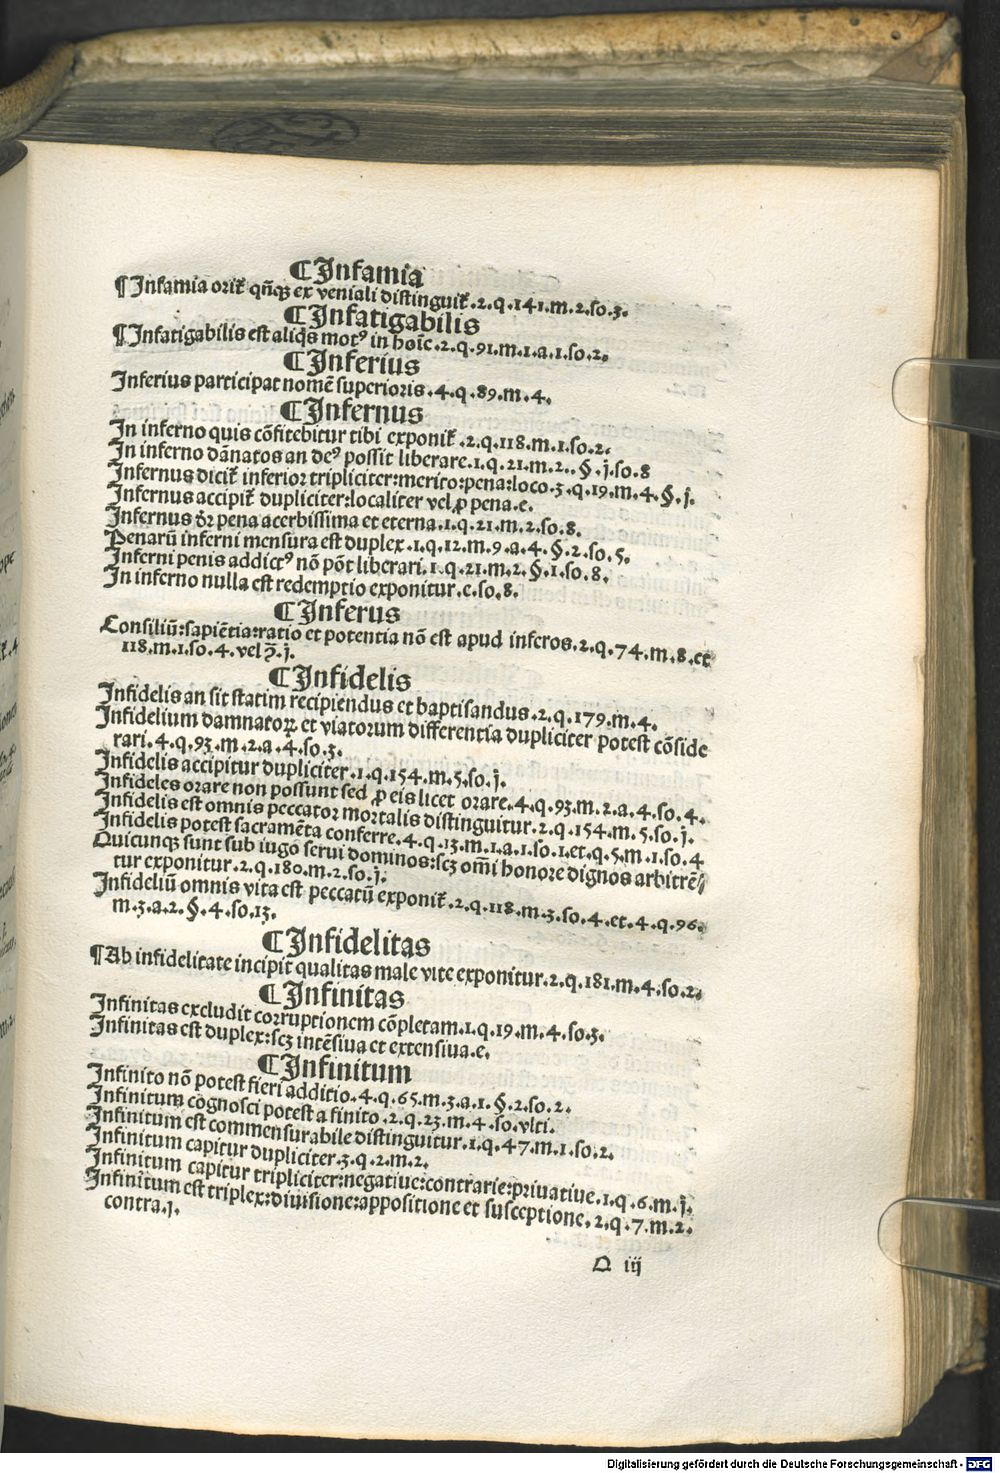 ¶Infamia
¶Infamia orit̃ qñqꝫ ex veniali distinguit̃.2.q.141.m.2.so.3.
¶Infatigabilis
¶Infatigabilis est aliq̃s motꝰ in hoĩe.2.q.91.m.1.a.1.so.2.
¶Inferius
Inferius participat nomẽ superioris.4.q.89.m.4.
¶Infernus
In inferno quis cõfitebitur tibi exponit̃.2.q.118.m.1.so.2.
In inferno dãnatos an deꝰ possit liberare.1.q.21.m.2..§.j.so.8
Infernus dicit̃ inferior tripliciter:merito:pena:loco.3.q.19.m.4.§.j.
Infernus accipit̃ dupliciter:localiter vel ꝓ pena.e.
Infernus dr̃ pena acerbissima et eterna.1.q.21.m.2.so.8.
Penarũ inferni mensura est duplex.1.q.12.m.9.a.4.§.2.so.5.
Inferni penis addictꝰ nõ põt liberari.1.q.21.m.2.§.1.so.8.
In inferno nulla est redemptio exponitur.e.so.8.
¶Inferus
Consiliũ:sapiẽtia:ratio et potentia nõ est apud inferos.2.q.74.m.8.et
118.m.1.so.4.vel ꝫ.j.
¶Infidelis
Infidelis an sit statim recipiendus et baptisandus.2.q.179.m.4.
Infidelium damnatoꝝ et viatorum differentia dupliciter potest cõside
rari.4.q.93.m.2.a.4.so.3.
Infidelis accipitur dupliciter.1.q.154.m.5.so.j.
Infideles orare non possunt sed ꝓ eis licet orare.4.q.93.m.2.a.4.so.4.
Infidelis est omnis peccator mortalis distinguitur.2.q.154.m.5.so.j.
Infidelis potest sacramẽta conferre.4.q.13.m.1.a.1.so.1.et.q.5.m.1.so.4
Quicunqꝫ sunt sub iugo serui dominos:scꝫ om̃i honore dignos arbitrẽ/
tur exponitur.2.q.180.m.2.so.j.
Infideliũ omnis vita est peccatũ exponit̃.2.q.118.m.3.so.4.et.4.q.96.
m.3.a.2.§.4.so.13.
¶Infidelitas
¶Ab infidelitate incipit qualitas male vite exponitur.2.q.181.m.4.so.2.
¶Infinitas
Infinitas excludit corruptionem cõpletam.1.q.19.m.4.so.3.
Infinitas est duplex:scꝫ intẽsiua et extensiua.e.
¶Infinitum
Infinito nõ potest fieri additio.4.q.65.m.3.a.1.§.2.so.2.
Infinitum cognosci potest a finito.2.q.23.m.4.so.vlti.
Infinitum est commensurabile distinguitur.1.q.47.m.1.so.2.
Infinitum capitur dupliciter.3.q.2.m.2.
Infinitum capitur tripliciter:negatiue:contrarie:priuatiue.1.q.6.m.j.
Infinitum est triplex:diuisione:appositione et susceptione.2.q.7.m.2.
contra.j.
Q iij
Digitalisierung gefördert durch die Deutsche Forschungsgemeinschaft - DFG